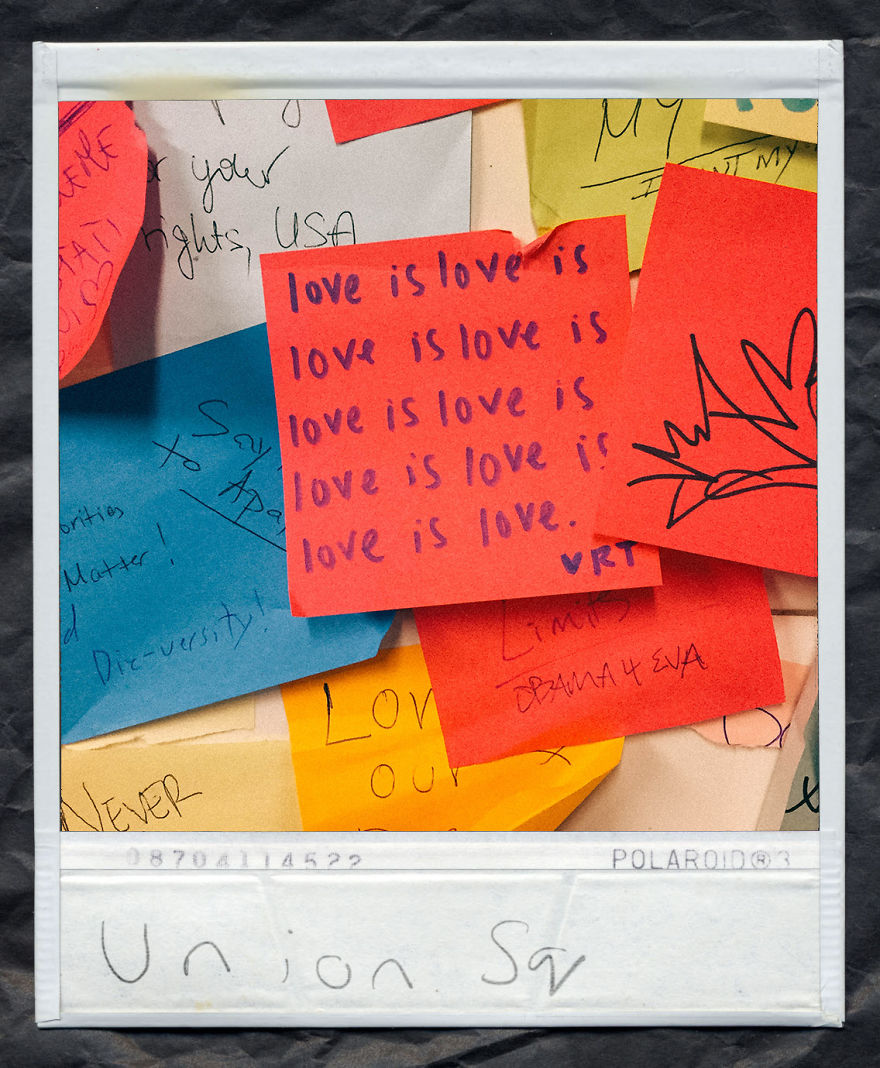 your
rights, USA
MY
love is love is
love is love is
love is love is
love is love is
love is love.
♥RT
Say
Matter!
Dic-versity!
Limits
OBAMA 4 EVA
LOV
OUR
NEVER
08704114522
POLAROID®3
Union Sq